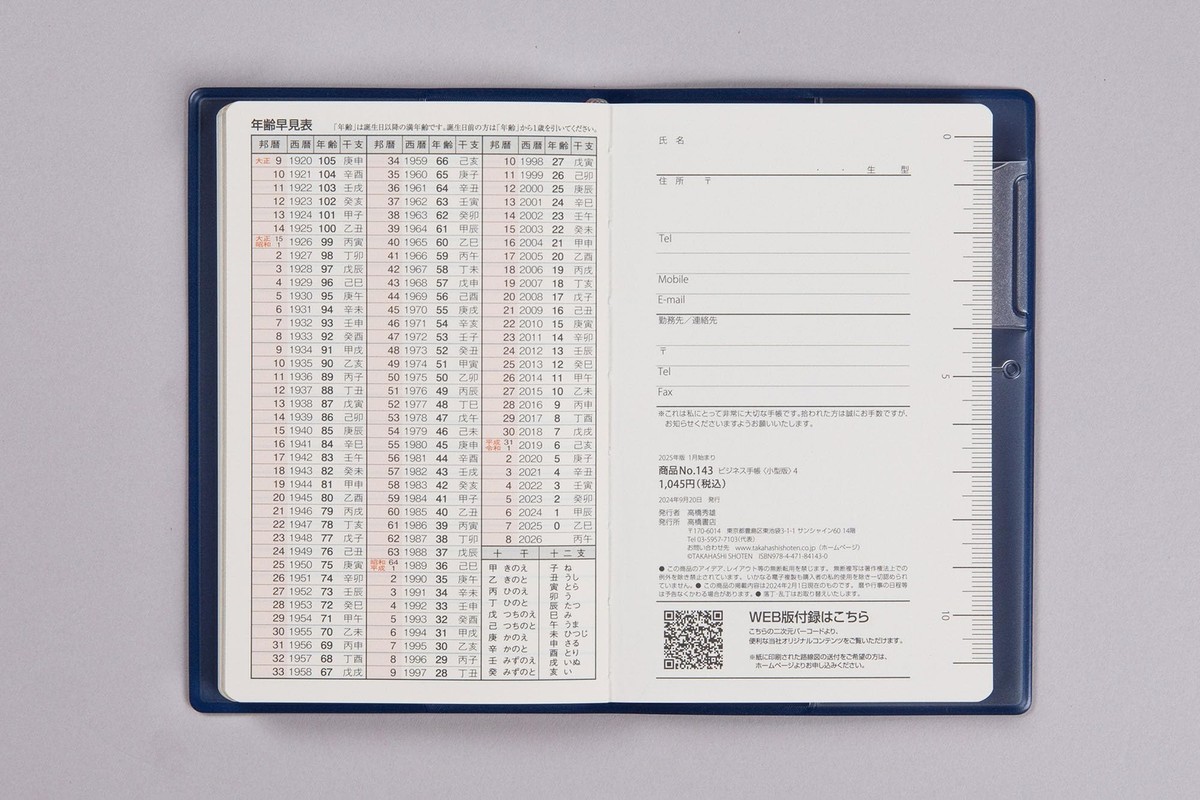 年齢早見表 「年齢」は誕生日以降の満年齢です。誕生日前の方は「年齢」から1歳を引いてください。
邦暦 西暦 年齢 干支 邦暦 西暦 年齢 干支 邦暦 西暦 年齢 干支
大正 9 1920 105 庚申 34 1959 66 己亥 10 1998 27 戊寅
10 1921 104 辛酉 35 1960 65 庚子 11 1999 26 己卯
11 1922 103 壬戌 36 1961 64 辛丑 12 2000 25 庚辰
12 1923 102 癸亥 37 1962 63 壬寅 13 2001 24 辛巳
13 1924 101 甲子 38 1963 62 癸卯 14 2002 23 壬午
14 1925 100 乙丑 39 1964 61 甲辰 15 2003 22 癸未
大正 15 昭和 1 1926 99 丙寅 40 1965 60 乙巳 16 2004 21 甲申
2 1927 98 丁卯 41 1966 59 丙午 17 2005 20 乙酉
3 1928 97 戊辰 42 1967 58 丁未 18 2006 19 丙戌
4 1929 96 己巳 43 1968 57 戊申 19 2007 18 丁亥
5 1930 95 庚午 44 1969 56 己酉 20 2008 17 戊子
6 1931 94 辛未 45 1970 55 庚戌 21 2009 16 己丑
7 1932 93 壬申 46 1971 54 辛亥 22 2010 15 庚寅
8 1933 92 癸酉 47 1972 53 壬子 23 2011 14 辛卯
9 1934 91 甲戌 48 1973 52 癸丑 24 2012 13 壬辰
10 1935 90 乙亥 49 1974 51 甲寅 25 2013 12 癸巳
11 1936 89 丙子 50 1975 50 乙卯 26 2014 11 甲午
12 1937 88 丁丑 51 1976 49 丙辰 27 2015 10 乙未
13 1938 87 戊寅 52 1977 48 丁巳 28 2016 9 丙申
14 1939 86 己卯 53 1978 47 戊午 29 2017 8 丁酉
15 1940 85 庚辰 54 1979 46 己未 30 2018 7 戊戌
16 1941 84 辛巳 55 1980 45 庚申 平成 31 令和 1 2019 6 己亥
17 1942 83 壬午 56 1981 44 辛酉 2 2020 5 庚子
18 1943 82 癸未 57 1982 43 壬戌 3 2021 4 辛丑
19 1944 81 甲申 58 1983 42 癸亥 4 2022 3 壬寅
20 1945 80 乙酉 59 1984 41 甲子 5 2023 2 癸卯
21 1946 79 丙戌 60 1985 40 乙丑 6 2024 1 甲辰
22 1947 78 丁亥 61 1986 39 丙寅 7 2025 0 乙巳
23 1948 77 戊子 62 1987 38 丁卯 8 2026 丙午
24 1949 76 己丑 63 1988 37 戊辰 十干 十二支
25 1950 75 庚寅 昭和 64 平成 1 1989 36 己巳 甲 きのえ 子 ね
26 1951 74 辛卯 2 1990 35 庚午 乙 きのと 丑 うし
27 1952 73 壬辰 3 1991 34 辛未 丙 ひのえ 寅 とら
28 1953 72 癸巳 4 1992 33 壬申 丁 ひのと 卯 う
29 1954 71 甲午 5 1993 32 癸酉 戊 つちのえ 辰 たつ
30 1955 70 乙未 6 1994 31 甲戌 己 つちのと 巳 み
31 1956 69 丙申 7 1995 30 乙亥 庚 かのえ 午 うま
32 1957 68 丁酉 8 1996 29 丙子 辛 かのと 未 ひつじ
33 1958 67 戊戌 9 1997 28 丁丑 壬 みずのえ 申 さる
癸 みずのと 酉 とり
戌 いぬ
亥 い
氏 名
・ ・ 生 型
住 所 〒
Tel
Mobile
E-mail
勤務先／連絡先
〒
Tel
Fax
※これは私にとって非常に大切な手帳です。拾われた方は誠にお手数ですが、
お知らせくださいますようお願いいたします。
2025年版 1月始まり
商品No.143 ビジネス手帳〈小型版〉4
1,045円（税込）
2024年9月20日 発行
発行者 高橋秀雄
発行所 高橋書店
〒170-6014 東京都豊島区東池袋3-1-1 サンシャイン60 14階
Tel 03-5957-7103（代表）
お問い合わせ先 www.takahashishoten.co.jp（ホームページ）
©TAKAHASHI SHOTEN ISBN978-4-471-84143-0
● この商品のアイデア、レイアウト等の無断転用を禁じます。 無断複写は著作権法上での
例外を除き禁止されています。 いかなる電子複製も購入者の私的使用を除き一切認められ
ていません。● この商品の掲載内容は2024年2月1日現在のものです。 暦や行事の日程等
は予告なくかわる場合があります。● 落丁・乱丁はお取り替えいたします。
WEB版付録はこちら
こちらの二次元バーコードより、
便利な当社オリジナルコンテンツをご覧いただけます。
※紙に印刷された路線図の送付をご希望の方は、
ホームページよりお申し込みください。
0
5
10